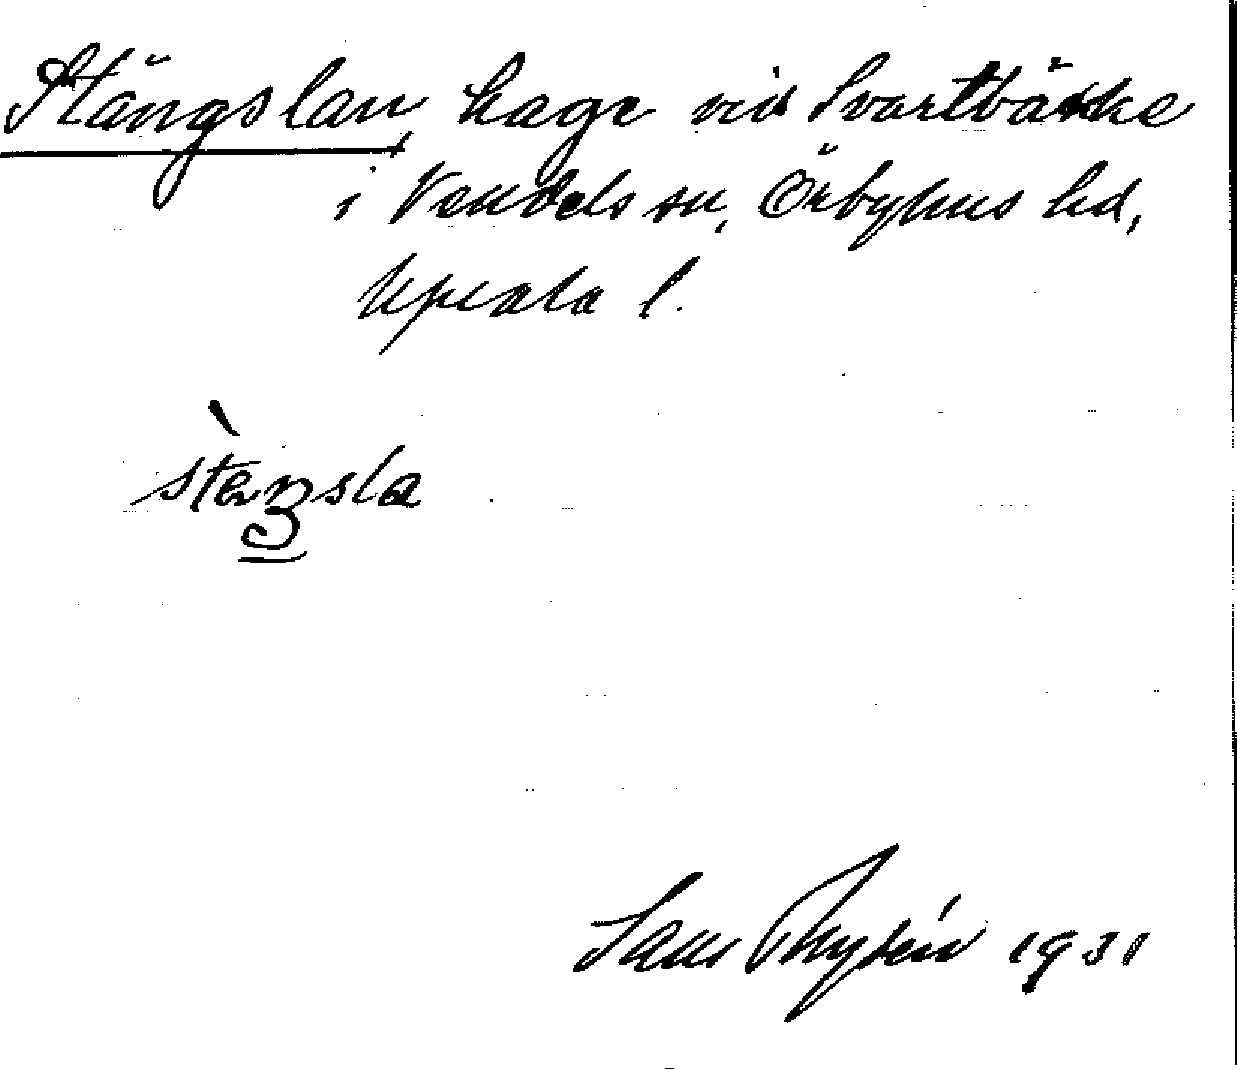 Stängslan, hage vid Svartbäcke
i Vendels sn, Örbyhus hd,
Upsala l.
stèŋsla
Sam 1931